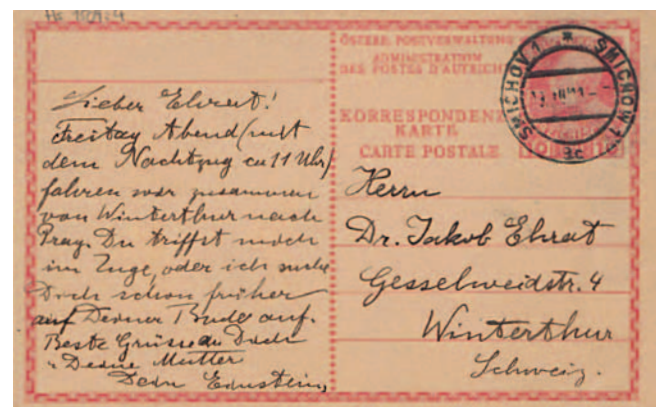 Hs 1509:4
Lieber Ehrat!
Freitag Abend (mit
dem Nachtzug ca 11 Uhr)
fahren wir zusammen
von Winterthur nach
Prag. Du triffst mich
im Zuge, oder ich suche
Dich schon früher
auf Deiner Bude auf.
Beste Grüsse an Dich
u Deine Mutter
Dein Einstein,
ÖSTERR. POSTVERWALTUNG
ADMINISTRATION
DES POSTES D'AUTRICHE
KORRESPONDENZ
KARTE
CARTE POSTALE
SMÍCHOV 1 * SMICHOW 1
3c
10 10
Herrn
Dr. Jakob Ehrat
Gesselweidstr. 4
Winterthur
Schweiz.